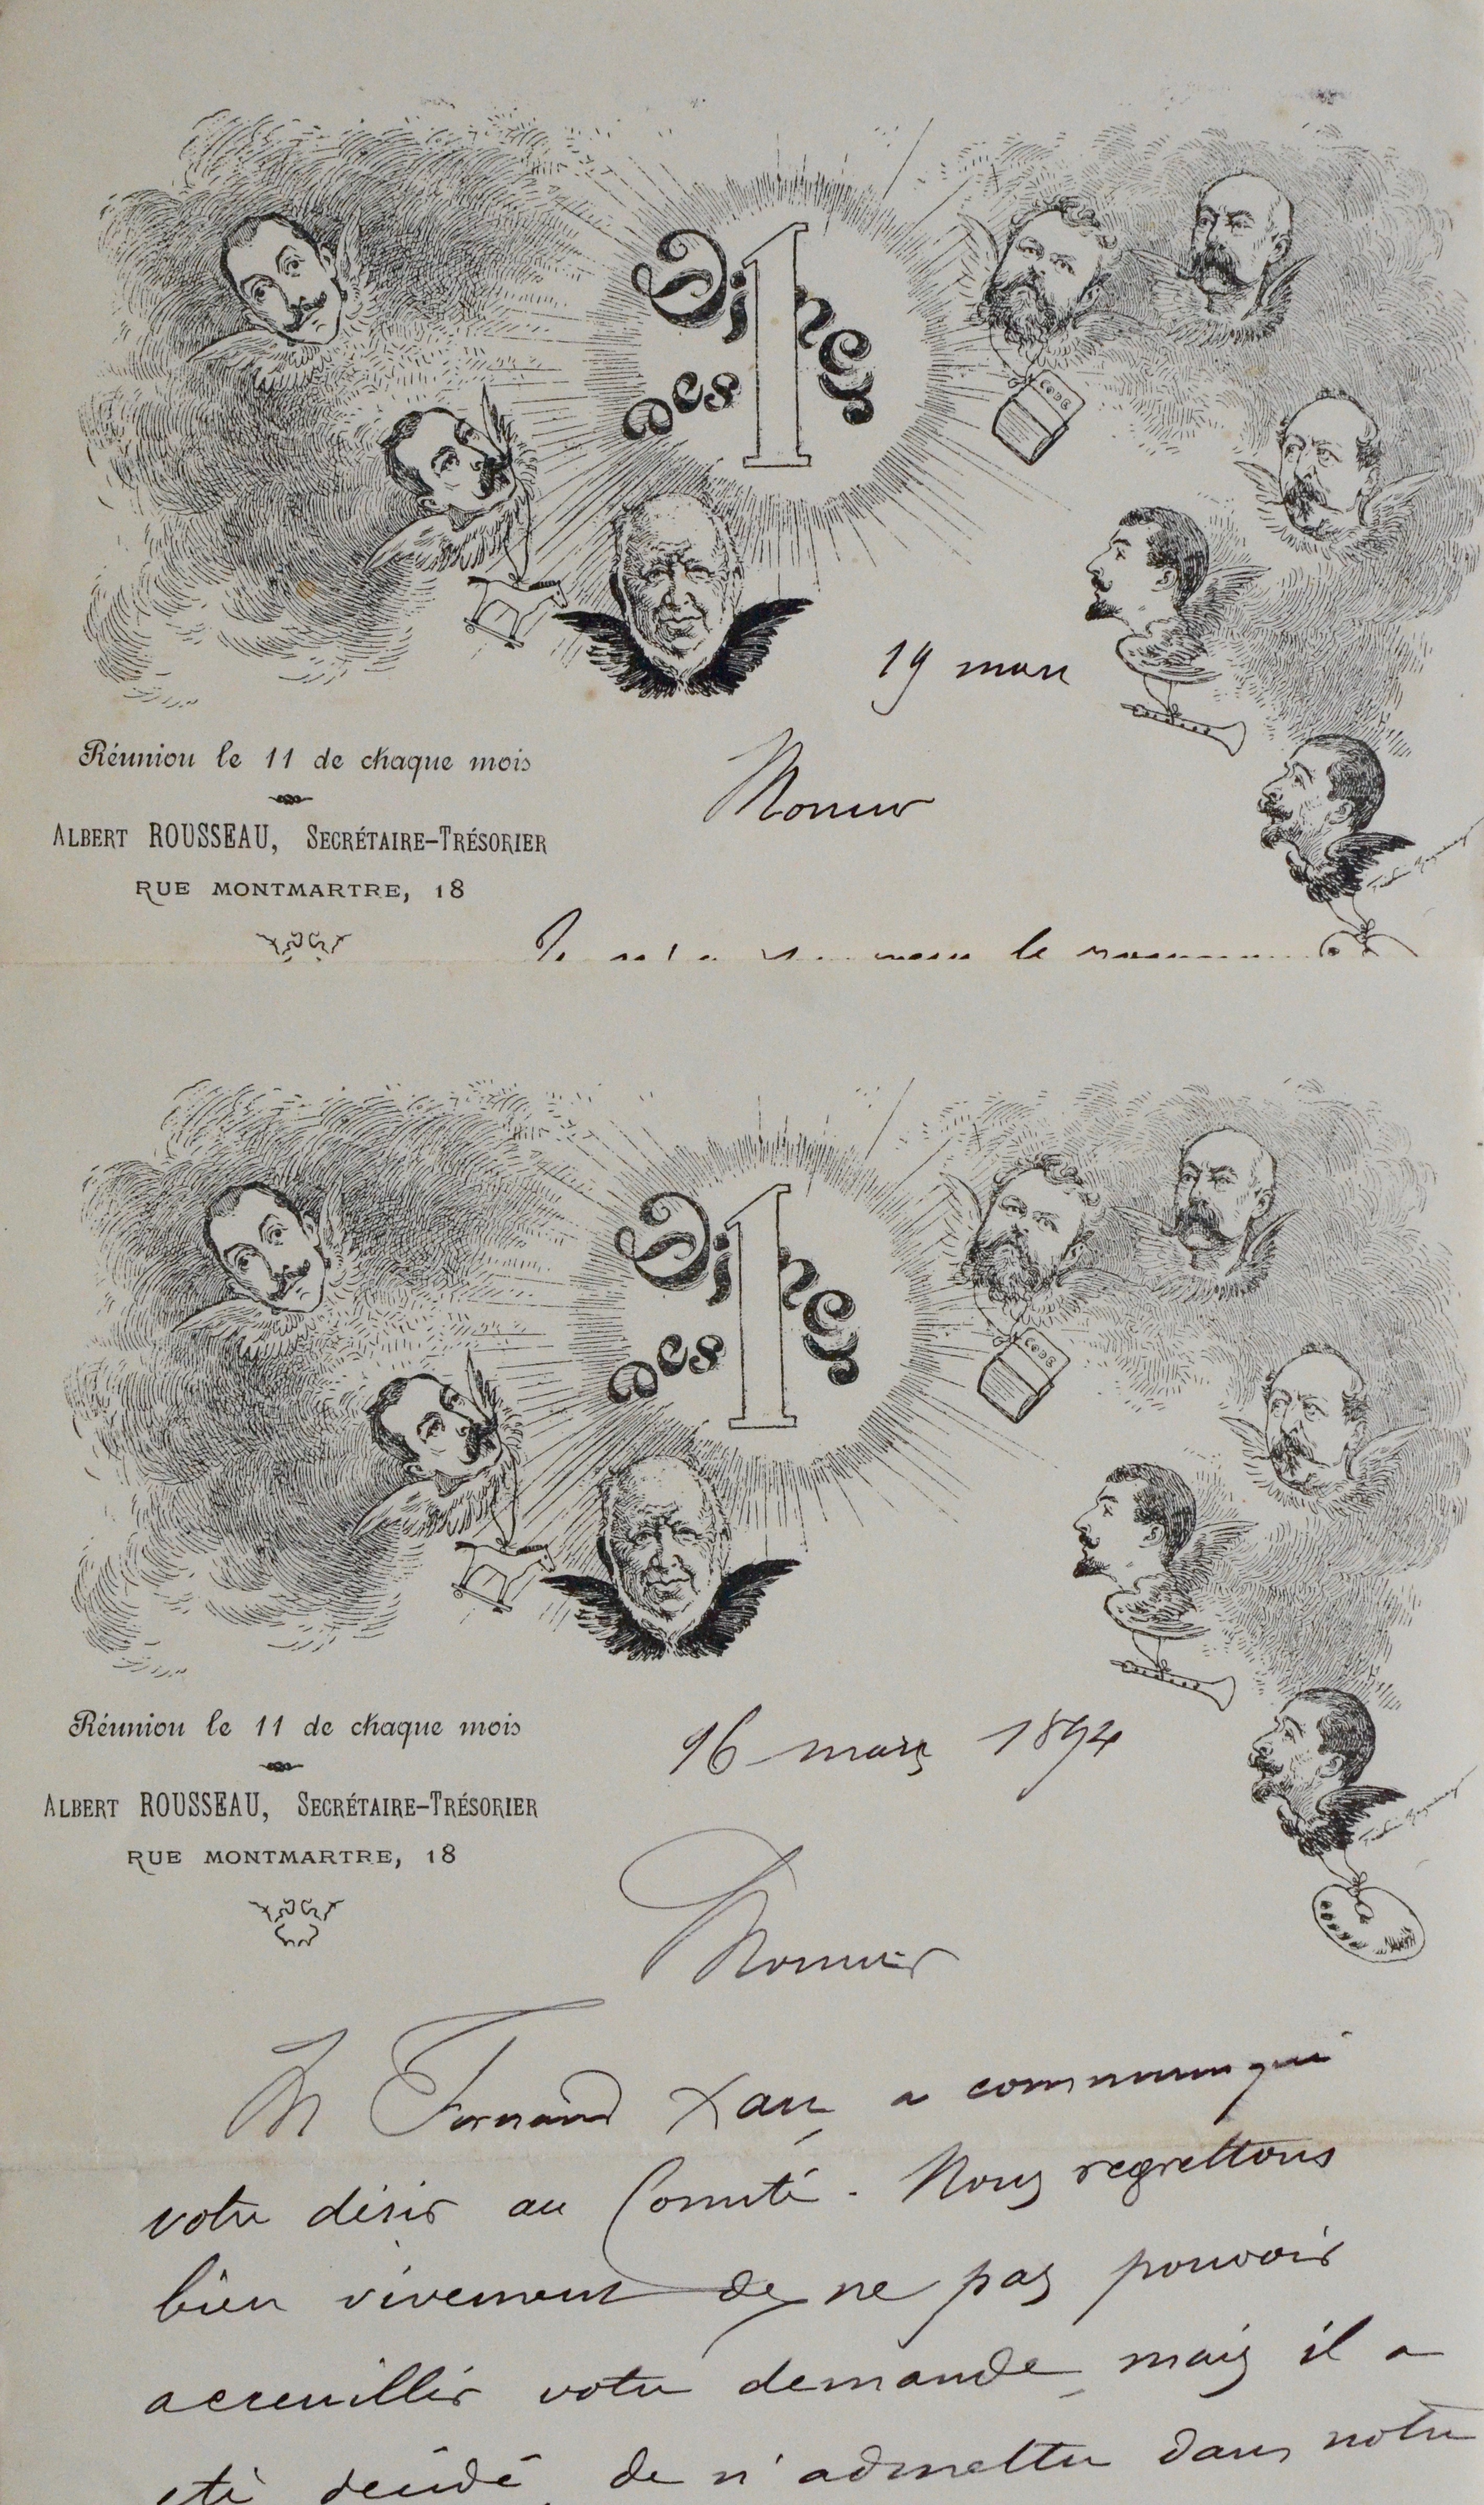 Dîner
des 1
CODE
19 mars
Réunion le 11 de chaque mois
Monsieur
ALBERT ROUSSEAU, SECRÉTAIRE-TRÉSORIER
RUE MONTMARTRE, 18
Je le
Dîner
des 1
CODE
Réunion le 11 de chaque mois
16 mars 1894
ALBERT ROUSSEAU, SECRÉTAIRE-TRÉSORIER
RUE MONTMARTRE, 18
Monsieur
M Fernand Xau, a communiqué
votre désir au Comité. Nous regrettons
bien vivement de ne pas pouvoir
accueillir votre demande, mais il a
été décidé, de n'admettre dans notre